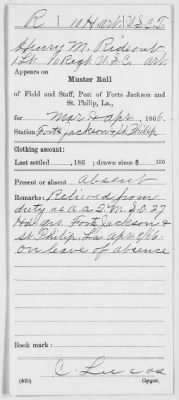 R | 10 H. Art. | U.S.C.T.
Henry M. Rideout
1 Lt., 10 Reg't U.S.C. Art.
Appears on
Muster Roll
of Field and Staff, Post of Forts Jackson and
St. Philip, La.,
for Mar & Apr, 1866.
Station Forts Jackson & St. Philip
Clothing account:
Last settled , 186 ; drawn since $ 100
Present or absent Absent
Remarks: Relieved from
duty as A. A. Q. M. S.O. 27
Hd. Qrs. Forts Jackson &
St. Philip, La. Apr /66.
On leave of absence
Book mark:
C. Lucas
Copyist.